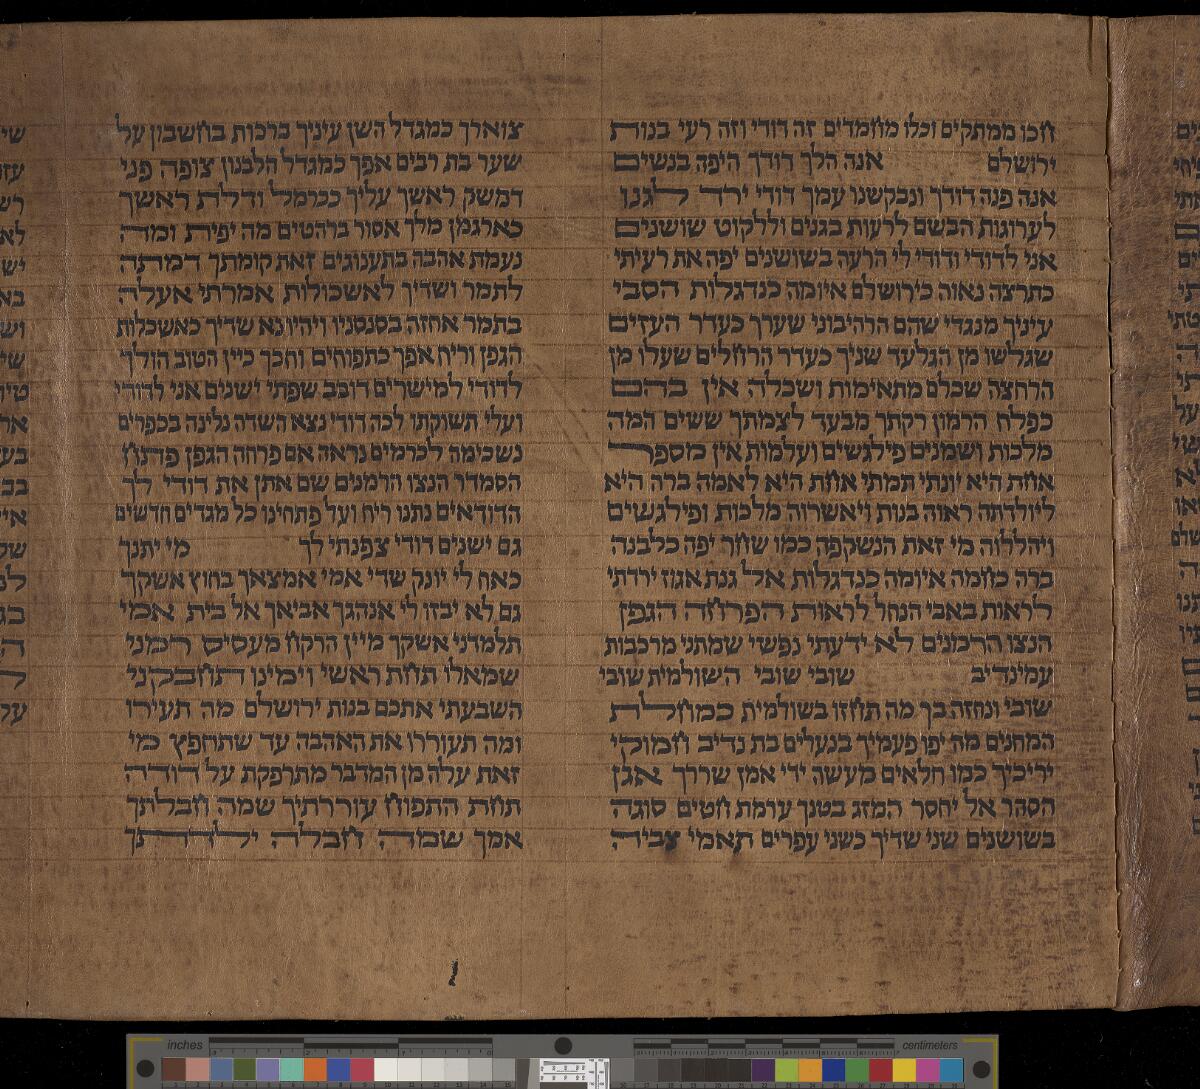 חכו ממתקים וכלו מחמדים זה דודי וזה רעי בנות
ירושלם אנה הלך דודך היפה בנשים
אנה פנה דודך ונבקשנו עמך דודי ירד לגנו
לערוגות הבשם לרעות בגנים וללקוט שושנים
אני לדודי ודודי לי הרעה בשושנים יפה את רעיתי
כתרצה נאוה כירושלם איומה כנדגלות הסבי
עיניך מנגדי שהם הרהיבוני שערך כעדר העזים
שגלשו מן הגלעד שניך כעדר הרחלים שעלו מן
הרחצה שכלם מתאימות ושכלה אין בהם
כפלח הרמון רקתך מבעד לצמתך ששים המה
מלכות ושמנים פילגשים ועלמות אין מספר
אחת היא יונתי תמתי אחת היא לאמה ברה היא
ליולדתה ראוה בנות ויאשרוה מלכות ופילגשים
ויהללוה מי זאת הנשקפה כמו שחר יפה כלבנה
ברה כחמה איומה כנדגלות אל גנת אגוז ירדתי
לראות באבי הנחל לראות הפרחה הגפן
הנצו הרמנים לא ידעתי נפשי שמתני מרכבות
עמינדיב שובי שובי השולמית שובי
שובי ונחזה בך מה תחזו בשולמית כמחלת
המחנים מה יפו פעמיך בנעלים בת נדיב חמוקי
יריכיך כמו חלאים מעשה ידי אמן שררך אגן
הסהר אל יחסר המזג בטנך ערמת חטים סוגה
בשושנים שני שדיך כשני עפרים תאמי צביה
צוארך כמגדל השן עיניך ברכות בחשבון על
שער בת רבים אפך כמגדל הלבנון צופה פני
דמשק ראשך עליך ככרמל ודלת ראשך
כארגמן מלך אסור ברהטים מה יפית ומה
נעמת אהבה בתענוגים זאת קומתך דמתה
לתמר ושדיך לאשכולות אמרתי אעלה
בתמר אחזה בסנסניו ויהיו נא שדיך כאשכלות
הגפן וריח אפך כתפוחים וחכך כיין הטוב הולך
לדודי למישרים דובב שפתי ישנים אני לדודי
ועלי תשוקתו לכה דודי נצא השדה נלינה בכפרים
נשכימה לכרמים נראה אם פרחה הגפן פתח
הסמדר הנצו הרמנים שם אתן את דודי לך
הדודאים נתנו ריח ועל פתחינו כל מגדים חדשים
גם ישנים דודי צפנתי לך מי יתנך
כאח לי יונק שדי אמי אמצאך בחוץ אשקך
גם לא יבזו לי אנהגך אביאך אל בית אמי
תלמדני אשקך מיין הרקח מעסיס רמני
שמאלו תחת ראשי וימינו תחבקני
השבעתי אתכם בנות ירושלם מה תעירו
ומה תעוררו את האהבה עד שתחפץ מי
זאת עלה מן המדבר מתרפקת על דודה
תחת התפוח עוררתיך שמה חבלתך
אמך שמה חבלה ילדתך
inches
centimeters